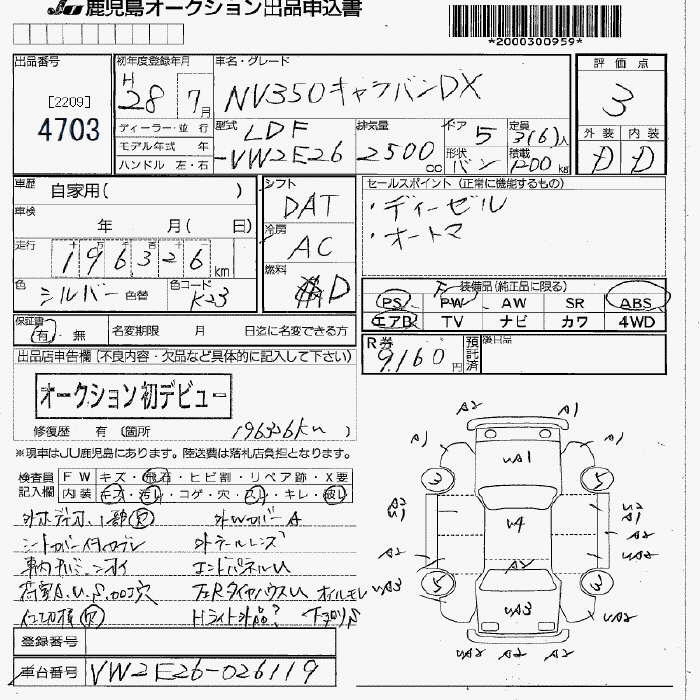 JU 鹿児島オークション出品申込書
*2000300959*
出品番号
[2209]
4703
初年度登録年月
H 28 7月
ディーラー・並 行
モデル年式 年
ハンドル 左・右
車名・グレード
NV350キャラバンDX
型式
LDF
-VW2E26
排気量
2500cc
ドア 5
定員 3(6)人
形状 バン
積載 1200kg
評価点
3
外装 内装
D D
車歴 自家用( )
車検 年 月( 日)
走行 十 万 千 百 十
196326km
色 シルバー 色替
色コード K23
シフト
DAT
冷房
AC
燃料
D
セールスポイント (正常に機能するもの)
・ディーゼル
・オートマ
装備品(純正品に限る)
PS PW AW SR ABS
エアB TV ナビ カワ 4WD
保証書
有・無
名変期限 月 日迄に名変できる方
R券
9,160円
預託済
後日品
出品店申告欄 (不良内容・欠品など具体的に記入して下さい)
オークション初デビュー
修復歴 有 (箇所 196326km )
※現車はJU鹿児島にあります。陸送費は落札店負担となります。
検査員記入欄
FW キズ・飛石・ヒビ割・リペア跡・X要
内装 キズ・汚レ・コゲ・穴・スレ・キレ・破レ
外WカバーA
シートカバー
外テールレンズ
エンドパネルU
荷室A.U.S.加工穴
左Rタイヤハウスu オイルモレ
Hライト外品? 下回りS
登録番号
車台番号 VW2E26-026119
A2 A1
A1 A1
UA1
3 5
A2
U1
U4
U2
A1
A2
A2
A2
A2
UA3 5 3 UA3
UA3
UA2 UA2
UA2 A2 UA2